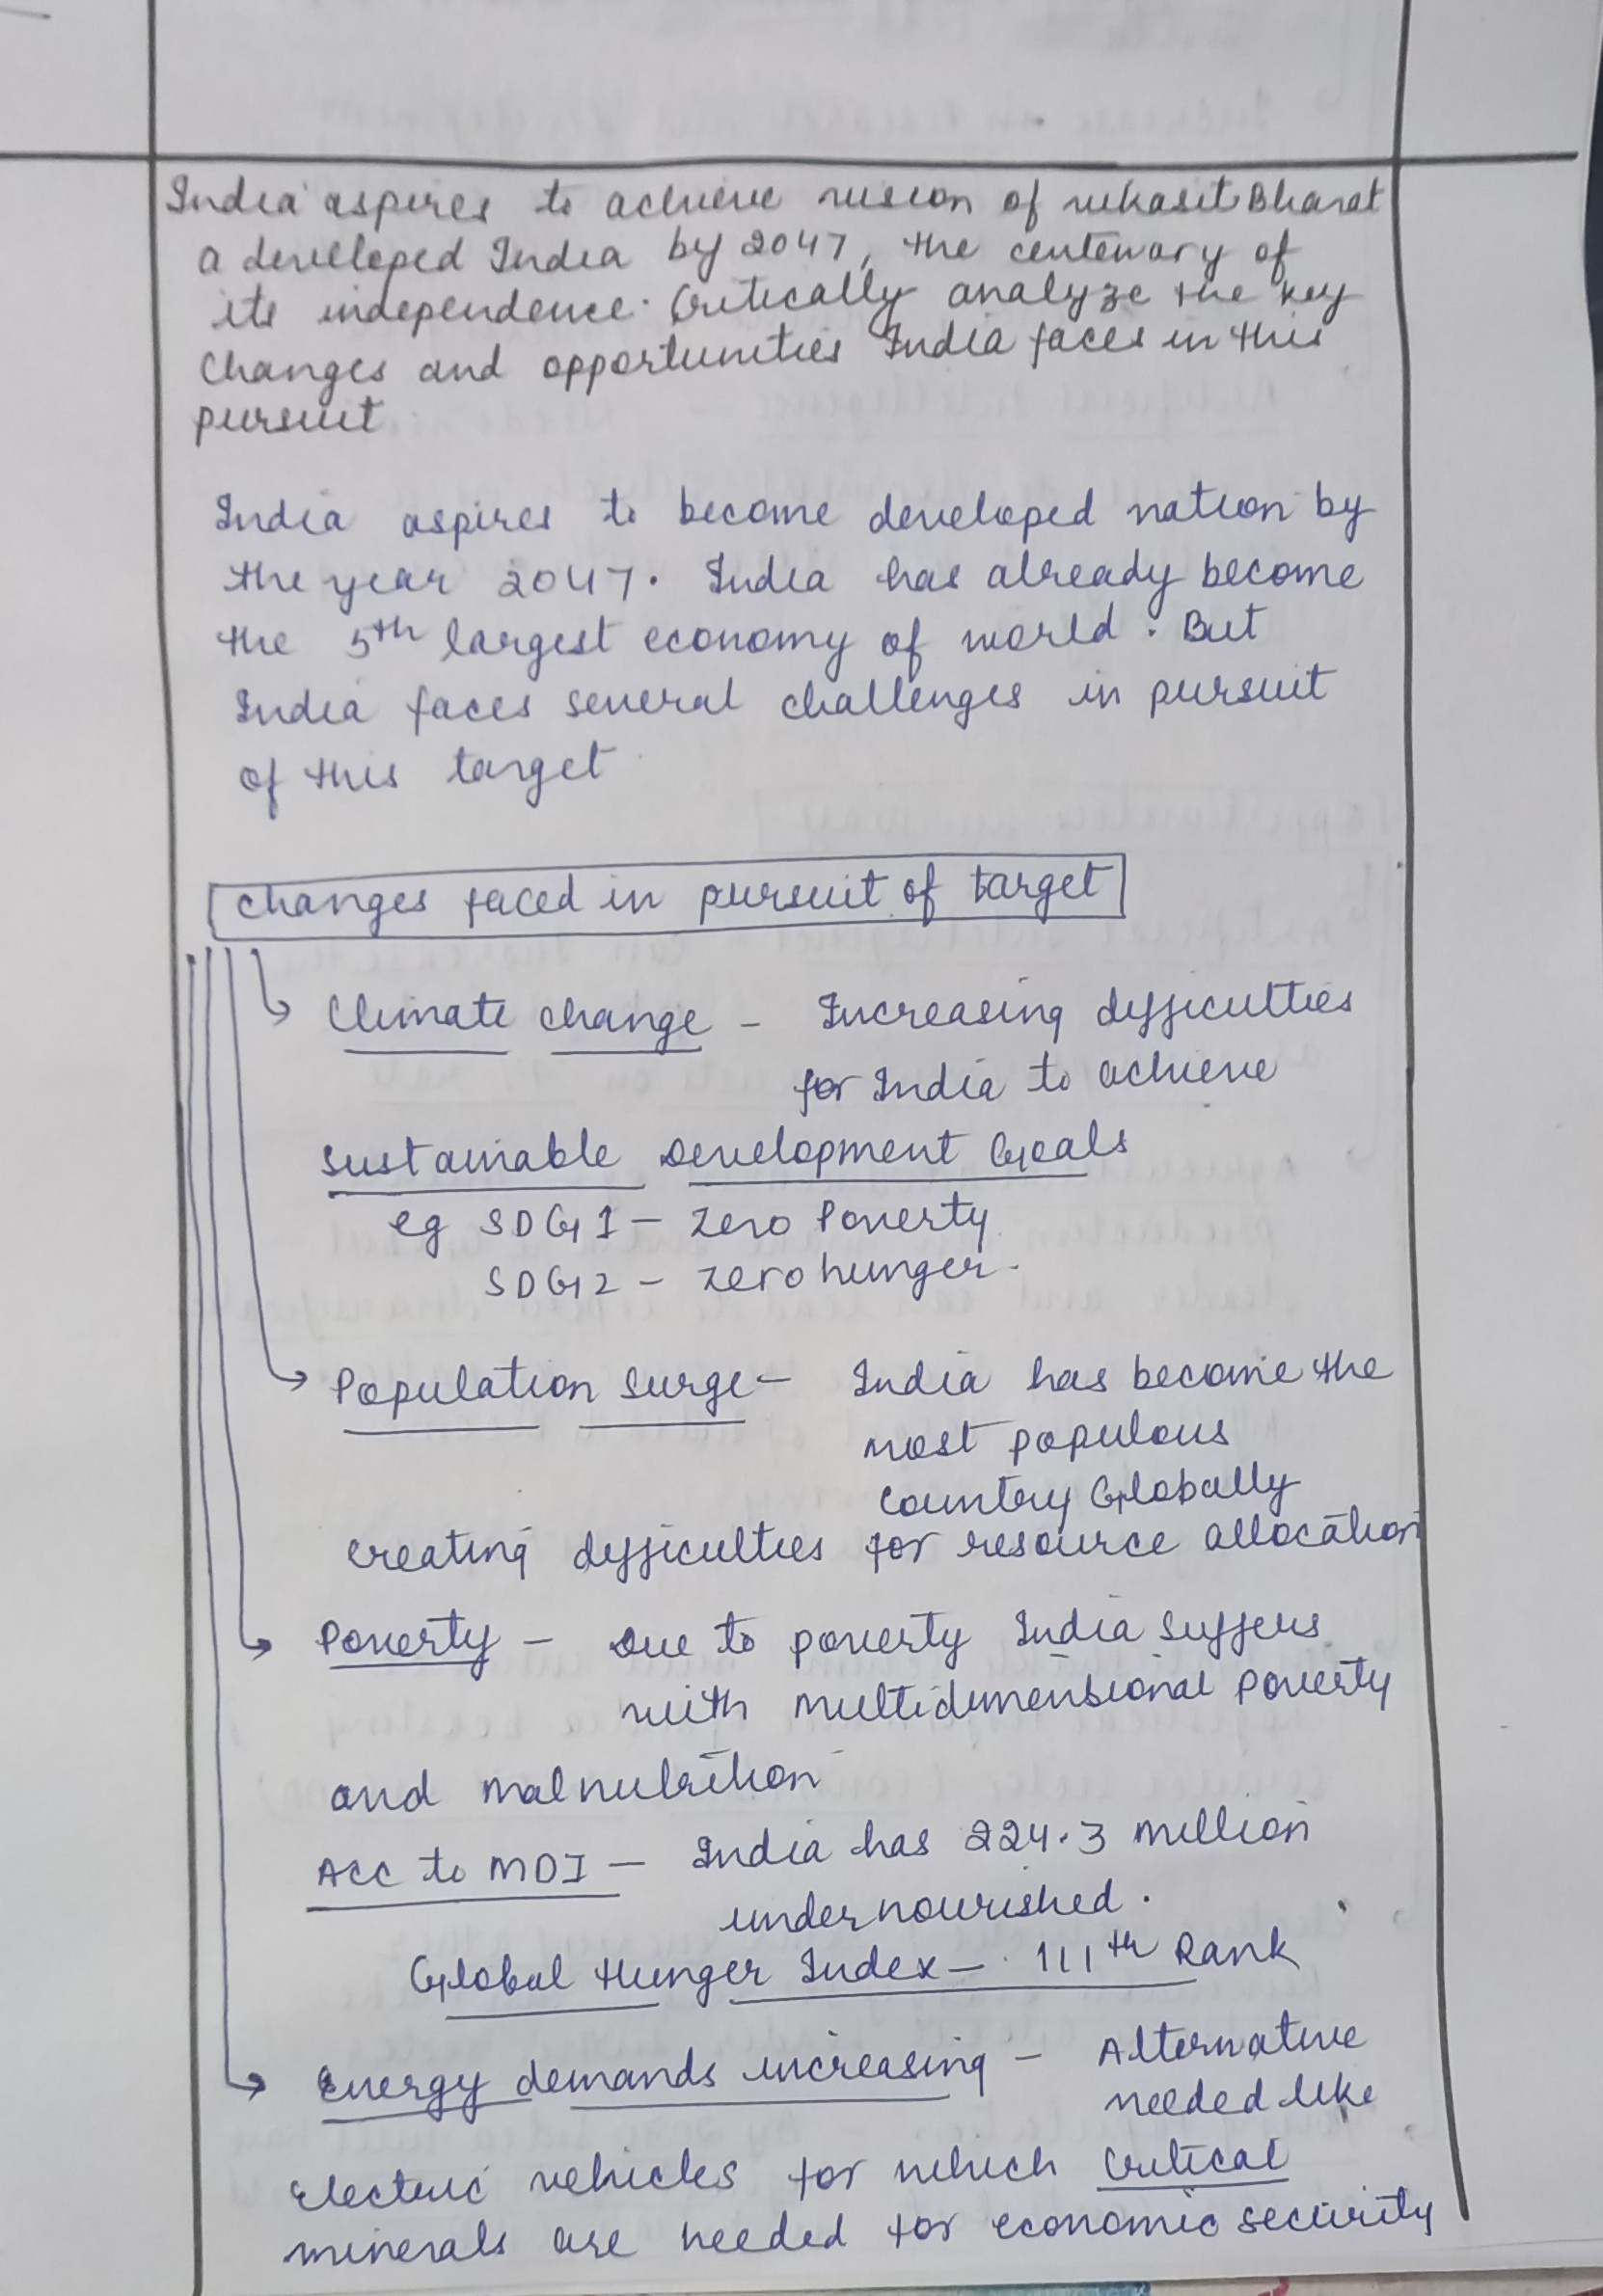 India aspires to achieve vision of vikasit Bharat
a developed India by 2047, the centenary of
its independence. Critically analyze the key
Changes and opportunities India faces in this
pursuit
India aspires to become developed nation by
the year 2047. India has already become
the 5th largest economy of world. But
India faces several challenges in pursuit
of this target
changes faced in pursuit of target
Climate change - Increasing difficulties
for India to achieve
Sustainable Development Goals
eg SDG1 - Zero Poverty
SDG2 - Zero hunger.
Population Surge - India has become the
most populous
country Globally
creating difficulties for resource allocation
Poverty - Due to poverty India suffers
with multidimensional poverty
and malnutrition
Acc to MDI - India has 224.3 million
undernourished.
Global Hunger Index - 111th Rank
Energy demands increasing - Alternative
needed like
Electric vehicles for which Critical
minerals are needed for economic security